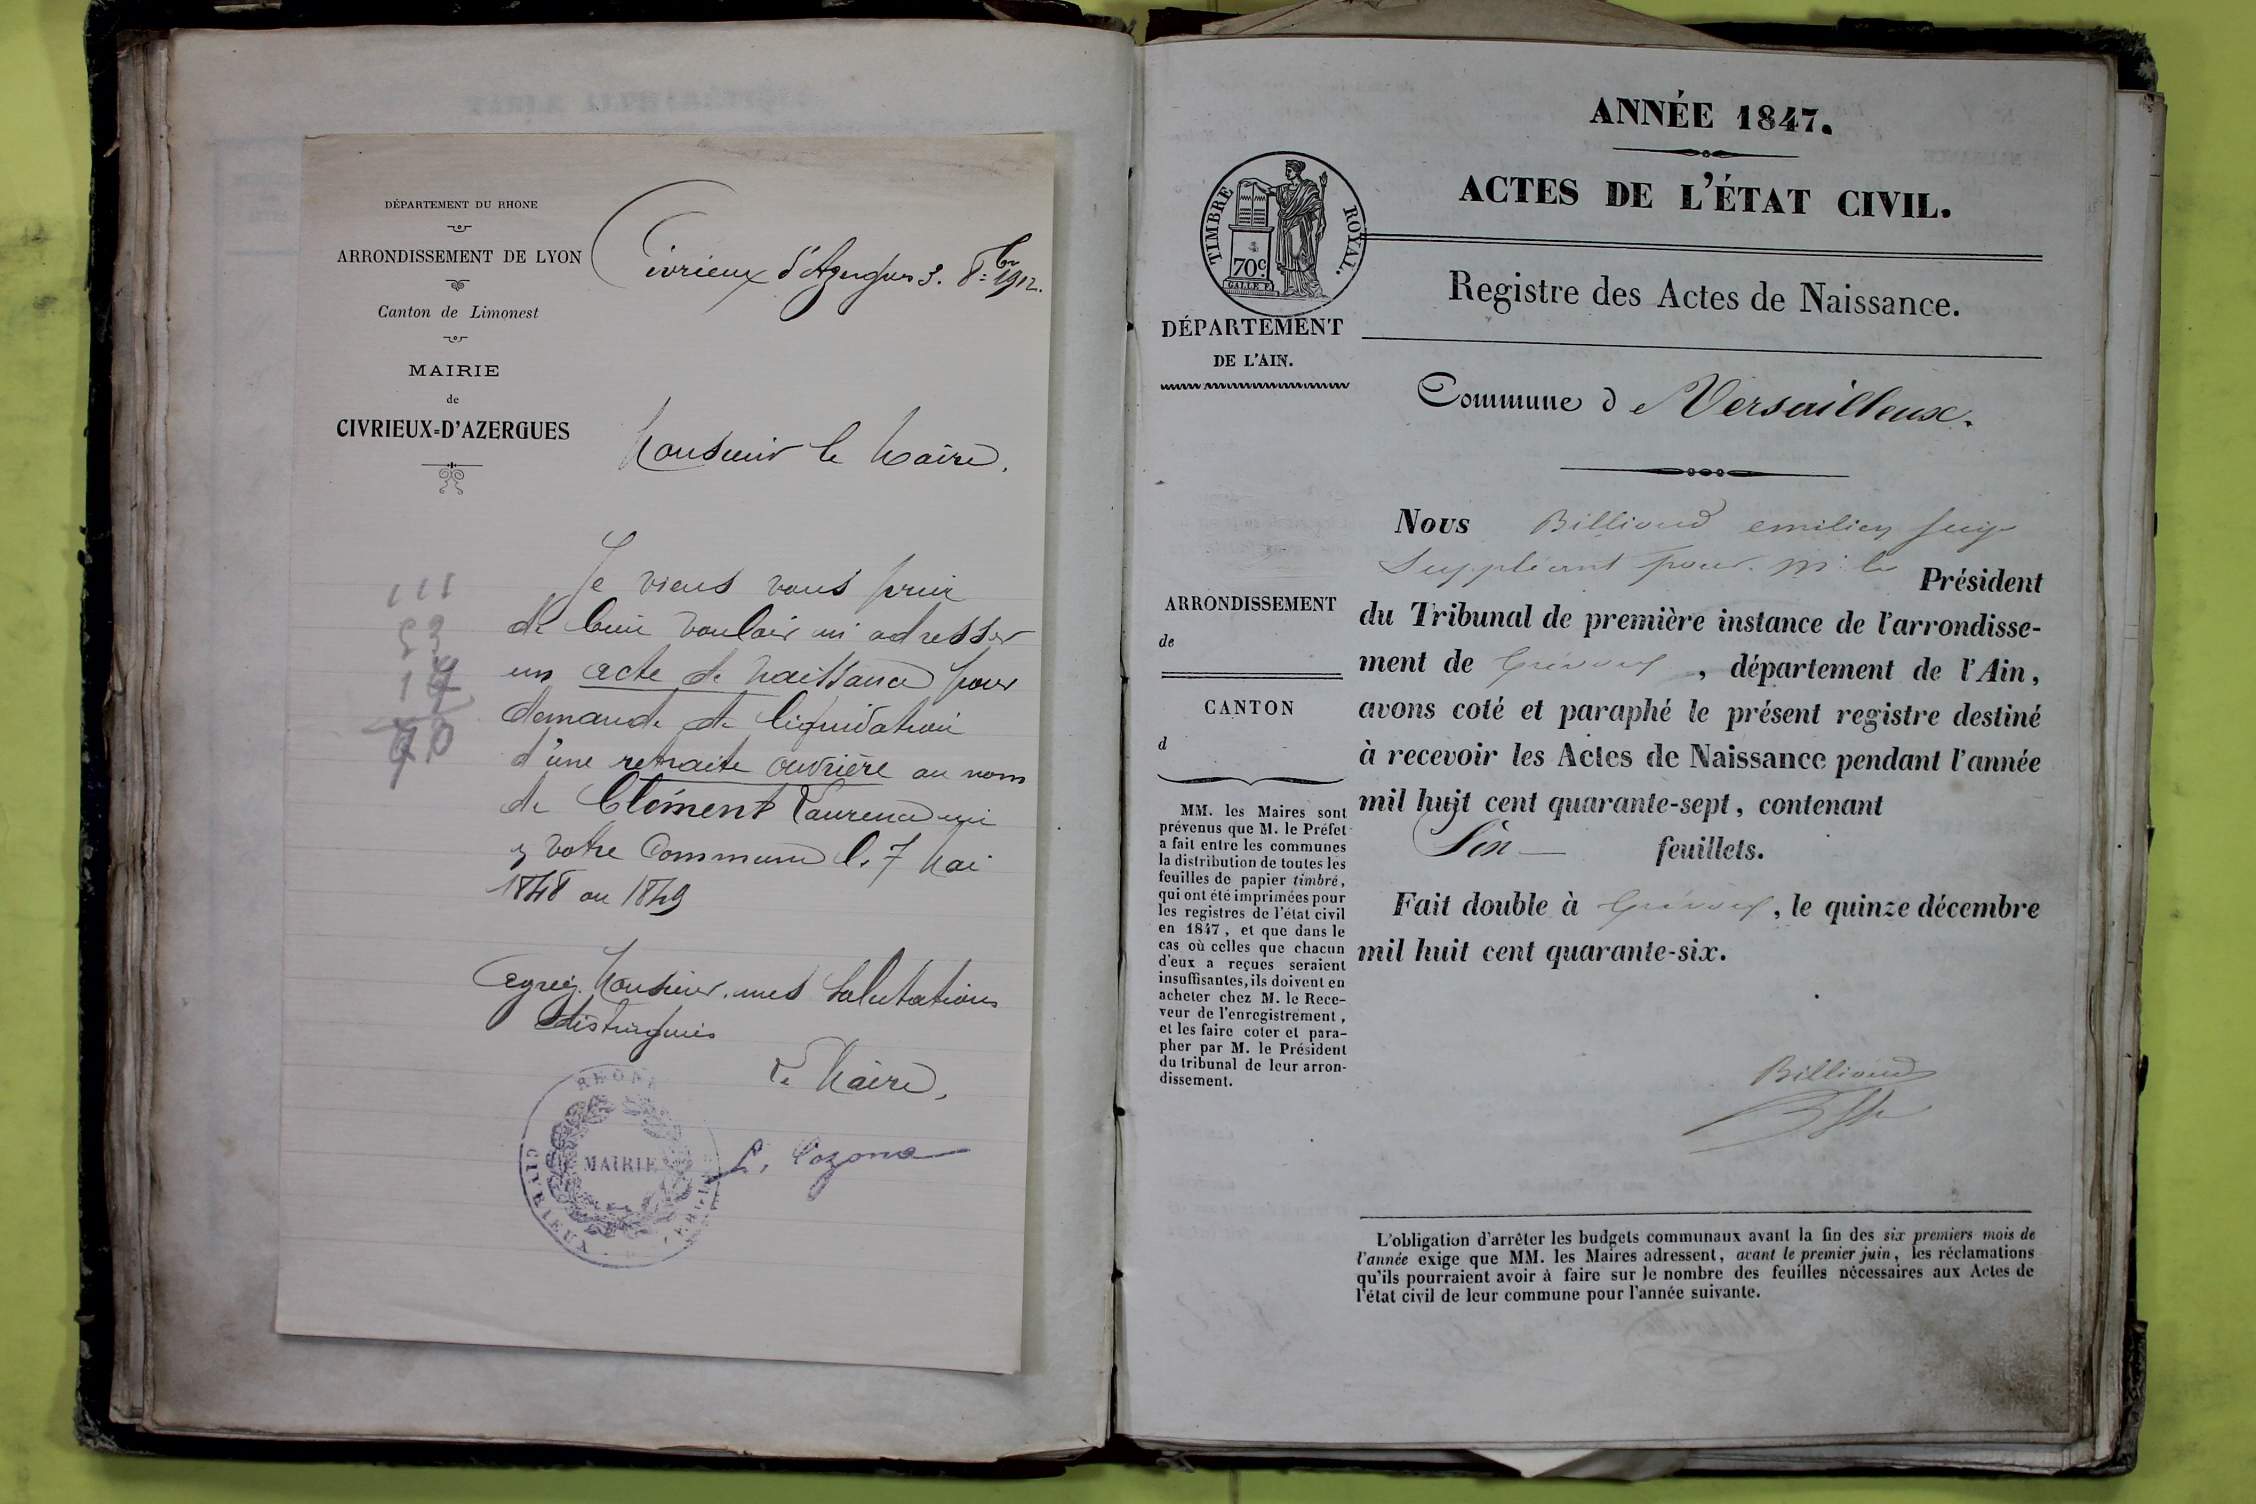 DÉPARTEMENT DU RHONE
ARRONDISSEMENT DE LYON
Canton de Limonest
MAIRIE
de
CIVRIEUX-D'AZERGUES
Civrieux d'Azergues 3. 8bre 1912.
Monsieur le Maire,
Je viens vous prier
de bien vouloir m'adresser
un acte de naissance pour
demande de liquidation
d'une retraite ouvrière au nom
de Clément Laurent
votre Commune le 7 Mai
1848 ou 1849
Agréez, Monsieur, mes salutations
distinguées
Le Maire,
RHONE
MAIRIE
CIVRIEUX
111
53
17
ANNÉE 1847.
ACTES DE L'ÉTAT CIVIL.
TIMBRE ROYAL.
70c
Registre des Actes de Naissance.
DÉPARTEMENT
DE L'AIN.
Commune de Versailleux.
Nous Billioud emilien juge
Suppléant pour M. le Président
du Tribunal de première instance de l'arrondisse-
ment de Trévoux, département de l'Ain,
avons coté et paraphé le présent registre destiné
à recevoir les Actes de Naissance pendant l'année
mil huit cent quarante-sept, contenant
Six feuillets.
Fait double à Trévoux, le quinze décembre
mil huit cent quarante-six.
Billioud
ARRONDISSEMENT
de
CANTON
d
MM. les Maires sont
prévenus que M. le Préfet
a fait entre les communes
la distribution de toutes les
feuilles de papier timbré,
qui ont été imprimées pour
les registres de l'état civil
en 1847, et que dans le
cas où celles que chacun
d'eux a reçues seraient
insuffisantes, ils doivent en
acheter chez M. le Rece-
veur de l'enregistrement,
et les faire coter et para-
pher par M. le Président
du tribunal de leur arron-
dissement.
L'obligation d'arrêter les budgets communaux avant la fin des six premiers mois de
l'année exige que MM. les Maires adressent, avant le premier juin, les réclamations
qu'ils pourraient avoir à faire sur le nombre des feuilles nécessaires aux Actes de
l'état civil de leur commune pour l'année suivante.